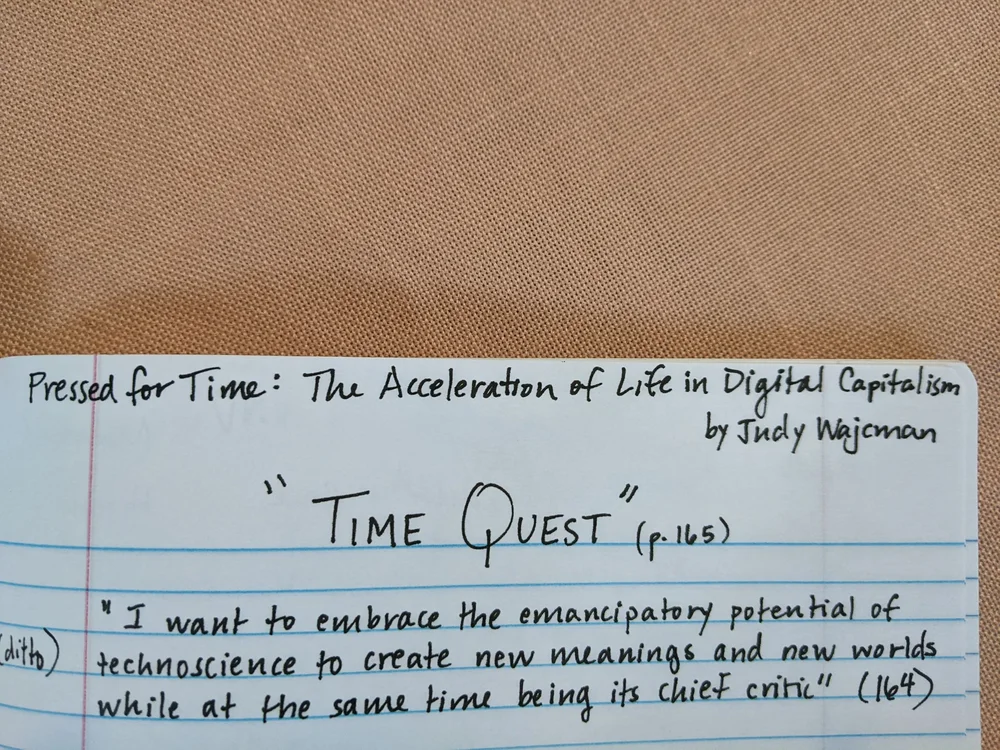 Pressed for Time: The Acceleration of Life in Digital Capitalism
by Judy Wajcman
"TIME QUEST" (p. 165)
"I want to embrace the emancipatory potential of
(ditto) technoscience to create new meanings and new worlds
while at the same time being its chief critic" (164)